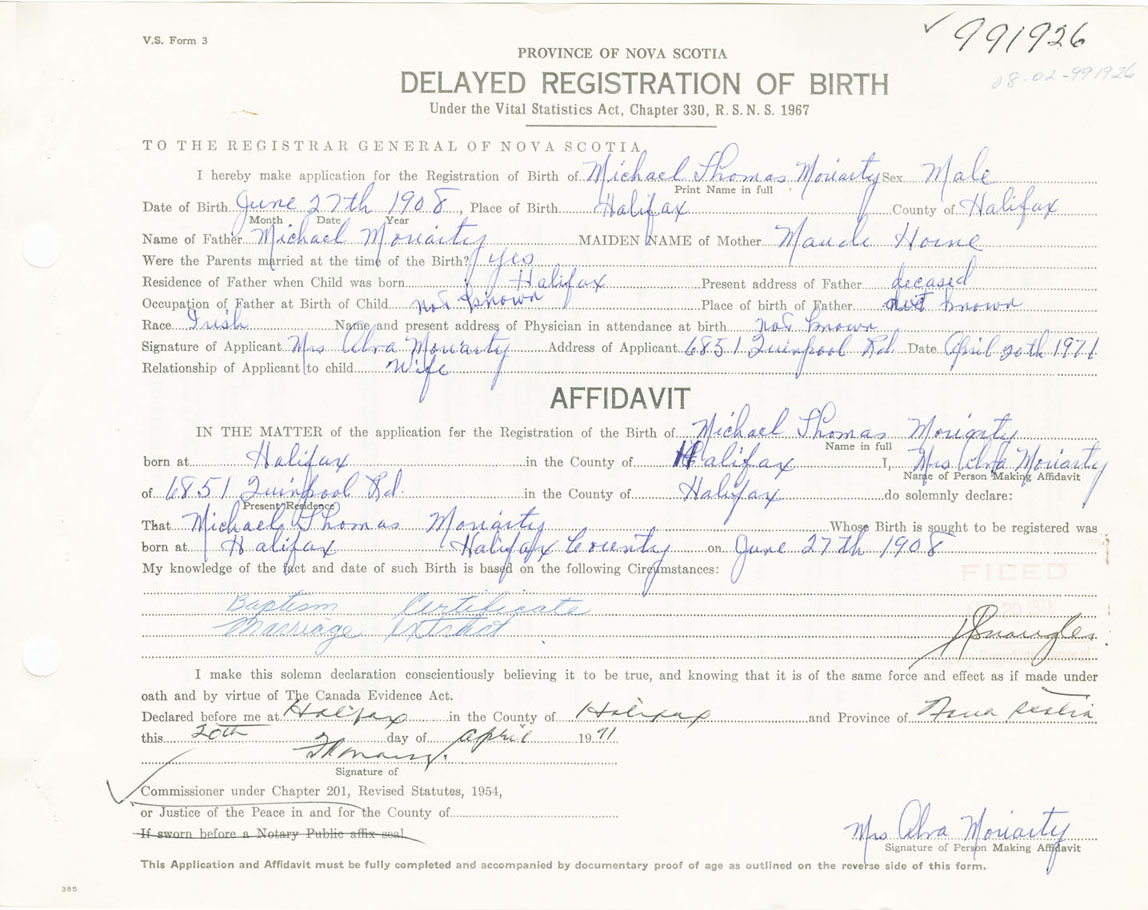 V.S. Form 3
991926
08-02-991926
PROVINCE OF NOVA SCOTIA
DELAYED REGISTRATION OF BIRTH
Under the Vital Statistics Act, Chapter 330, R.S.N.S. 1967
TO THE REGISTRAR GENERAL OF NOVA SCOTIA
I hereby make application for the Registration of Birth of Michael Thomas Moriarty Sex Male
Print Name in full
Date of Birth June 27th 1908, Place of Birth Halifax County of Halifax
Month Date Year
Name of Father Michael Moriarty MAIDEN NAME of Mother Maude Horne
Were the Parents married at the time of the Birth? yes
Residence of Father when Child was born Halifax Present address of Father decased
Occupation of Father at Birth of Child not known Place of birth of Father not known
Race Irish Name and present address of Physician in attendance at birth not known
Signature of Applicant Mrs Alva Moriarty Address of Applicant 6851 Quinpool Rd. Date April 20th 1971
Relationship of Applicant to child Wife
AFFIDAVIT
IN THE MATTER of the application for the Registration of the Birth of Michael Thomas Moriarty
Name in full
born at Halifax in the County of Halifax I, Mrs Alva Moriarty
Name of Person Making Affidavit
of 6851 Quinpool Rd. in the County of Halifax do solemnly declare:
Present Residence
That Michael Thomas Moriarty Whose Birth is sought to be registered was
born at Halifax Halifax County on June 27th 1908
My knowledge of the fact and date of such Birth is based on the following Circumstances:
FILED
Baptism Certificate
Marriage extract
I make this solemn declaration conscientiously believing it to be true, and knowing that it is of the same force and effect as if made under
oath and by virtue of The Canada Evidence Act.
Declared before me at Halifax in the County of Halifax and Province of Nova Scotia
this 20th day of April 1971
Signature of
Commissioner under Chapter 201, Revised Statutes, 1954,
or Justice of the Peace in and for the County of
If sworn before a Notary Public affix seal
Mrs Alva Moriarty
Signature of Person Making Affidavit
This Application and Affidavit must be fully completed and accompanied by documentary proof of age as outlined on the reverse side of this form.
385